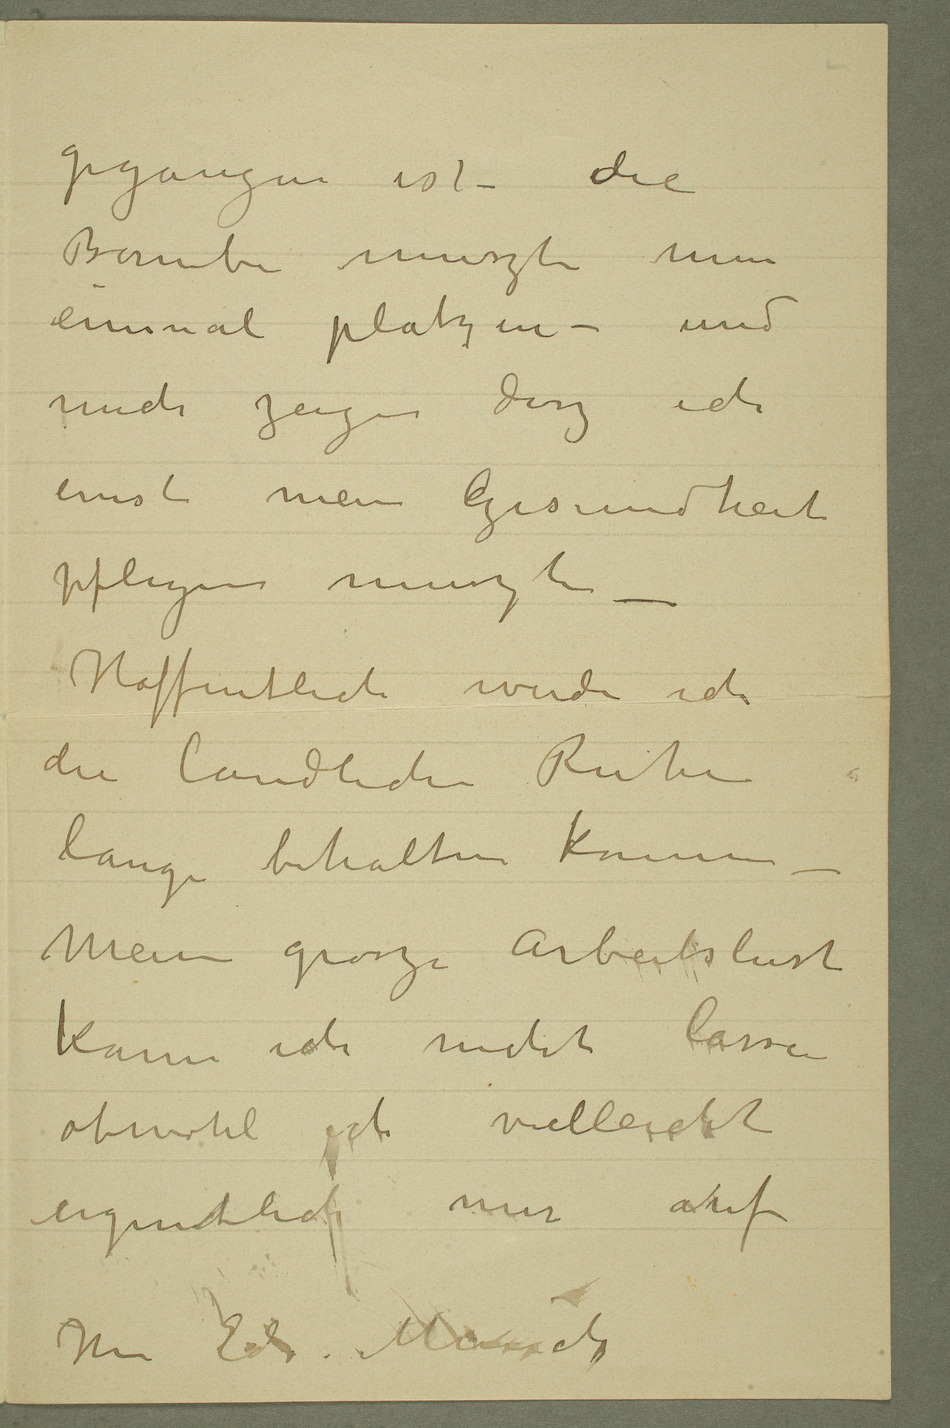 gegangen ist – die
Bombe muszte nun
einmal platzen – und
mich zeigen dasz ich
ernst mein Gesundheit
pflegen muszte –
Hoffentlich werde ich
die landliche Ruhe
lange behalten konnen –
Meine grosze Arbeitslust
kann ich nicht lassen
obwohl ich vielleicht
eigentlich nur auf
Ihr Edv. Munch